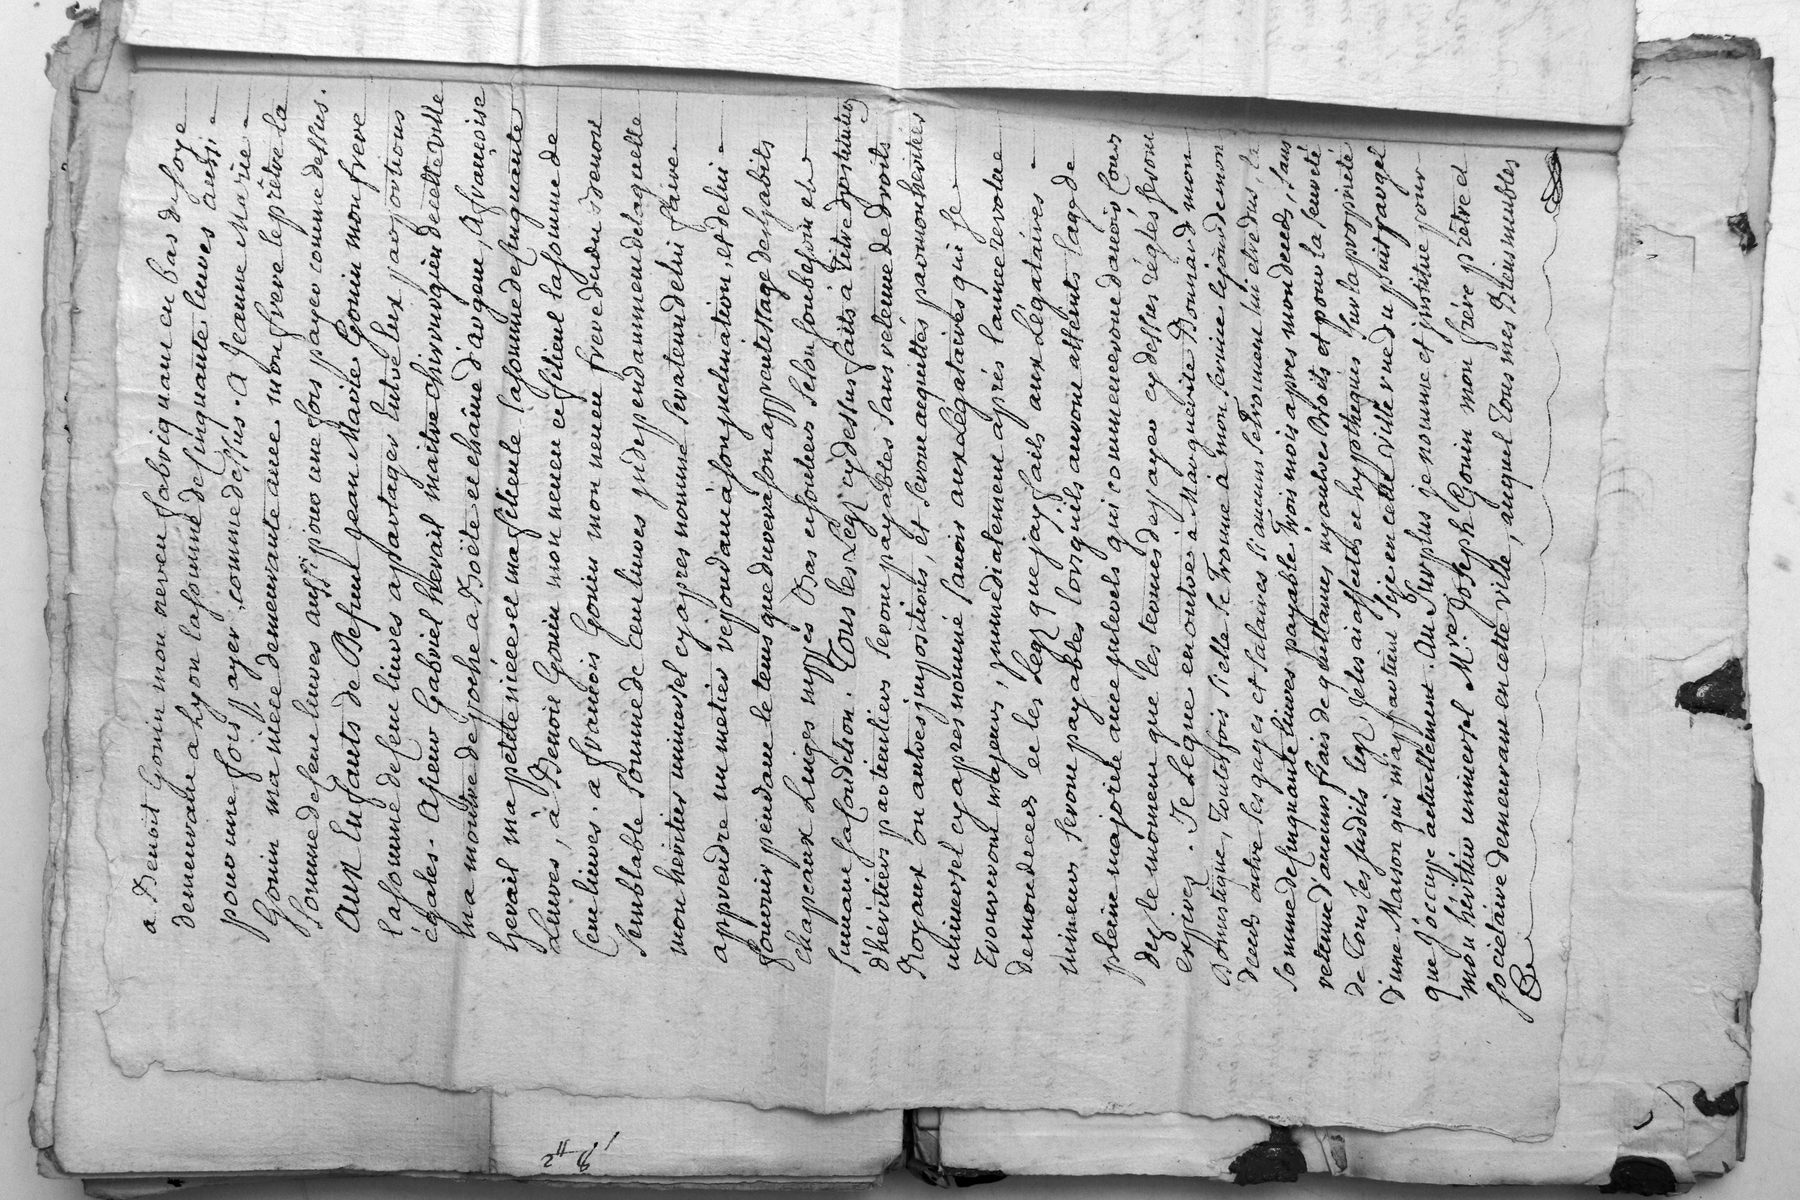 a Benoist Gonin mon neveu fabriquant en bas de soye
demeurant a Lyon la somme de Cinquante livres aussi
pour une fois payer comme dessus. A Jeanne Marie
Gonin ma niéce demeurante avec mon frere le prêtre la
somme de Cent livres aussi pour une fois payer comme dessus.
Aux Enfants de Defunt Jean Marie Gonin mon frere
la somme de Cent livres a partager Entre Eux par portions
égales. A sieur Gabriel hevrait maitre chirurgien de cette ville
ma montre de poche a Boëte et chaine d'argent, A françoise
hevrait ma petite niéce et ma filieule la somme de Cinquante
Livres, à Benoit Gonin mon neveu et filieul la somme de
Cent livres. a francois Gonin mon neveu frere dudit Benoit
semblable somme de Cent livres independamment de laquelle
mon heritier universel cy apres nommé sera tenu de lui faire
apprendre un metier repondant à son inclination, et de lui
fournir pendant le tems que durera son apprentissage des habits
chapeaux Linges nippes Bas et souliers selon son besoin et
suivant sa Condition. Tous les Legz cy dessus faits à titre d'institution
d'héritiers particuliers seront payables sans retenue de droits
Royaux ou autres impositions, et seront acquittés par mon heritier
universel cy apres nommé savoir aux Légataires qui se
trouveront majeurs, immediatement après l'année revolue
de mon deces et les Legz que jay faits aux Légataires
mineurs seront payables lorsqu'ils auront atteints l'age de
pleine majorité avec interets qui commenceront d'avoir Cours
dez le moment que les termes de payer cy dessus réglés seront
expirez. Je Legue en outre à Marguerite Bonnard mon
Domestique, Toutefois si elle se trouve à mon service le jour de mon
deces outre ses gages et salaires si aucuns se trouvent lui etre dus, la
somme de Cinquante livres payable trois mois apres mon deces, sans
retenue d'aucuns frais de quittances ny autres Droits et pour la sureté
de Tous les susdits legz Jelis ai affectés et hypothequés sur la proprieté
d'une Maison qui m'appartient sise en cette ville rue du puit
que j'occupe actuellement. Au surplus je nomme et institue pour
mon héritier universel Mre Joseph Gonin mon frére prêtre et
societaire demeurant en cette ville, auquel Tous mes Biens meubles